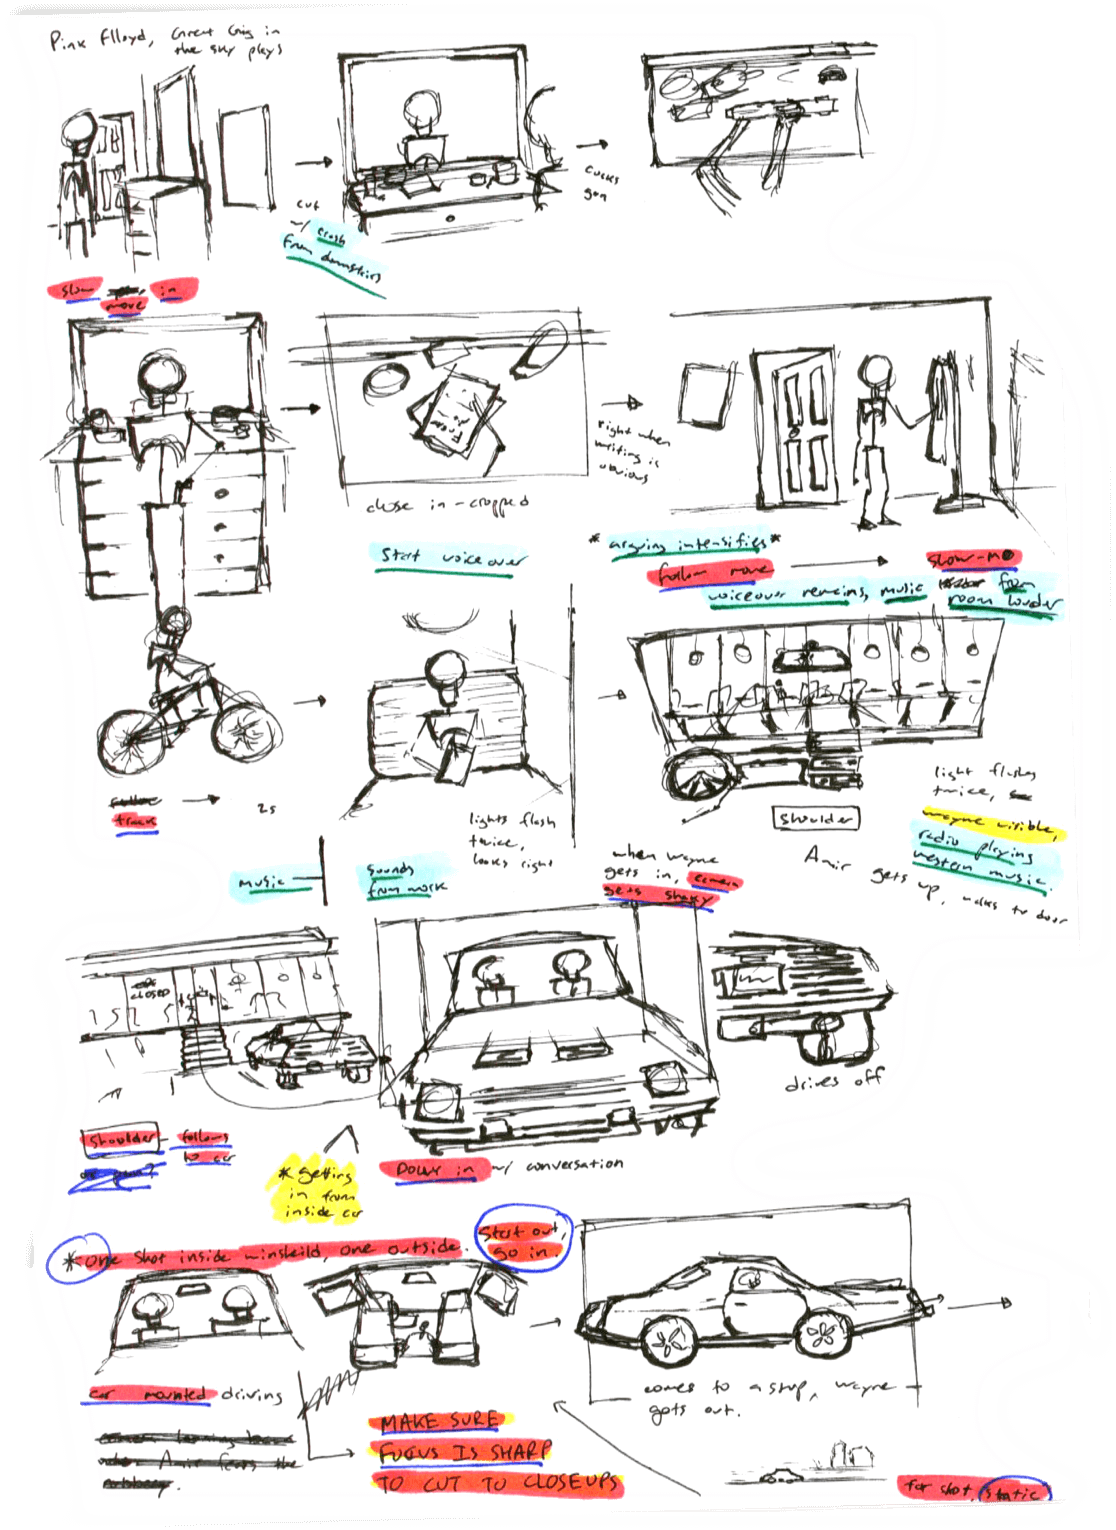 Pink Flloyd, Great Gig in
the sky plays
cut
w/ crash
from downstairs
cocks
gun
slow in
move
right when
writing is
obvious
close in - cropped
Start voiceover
* arguing intensifies *
follow move
slow-mo
voiceover remains, music from
room louder
track
2s
lights flash
twice,
looks right
music
sounds
from work
shoulder
light flashes
twice,
wayne visible,
radio playing
western music.
Amir gets up, walks to door
when wayne
gets in, camera
gets shaky
CLOSED
drives off
shoulder - follows
to car
* getting
in from
inside car
DOLLY in w/ conversation
* one shot inside winsheild, one outside.
Start out,
go in.
car mounted driving
MAKE SURE
FOCUS IS SHARP
TO CUT TO CLOSEUPS
comes to a stop, wayne
gets out.
far shot, static